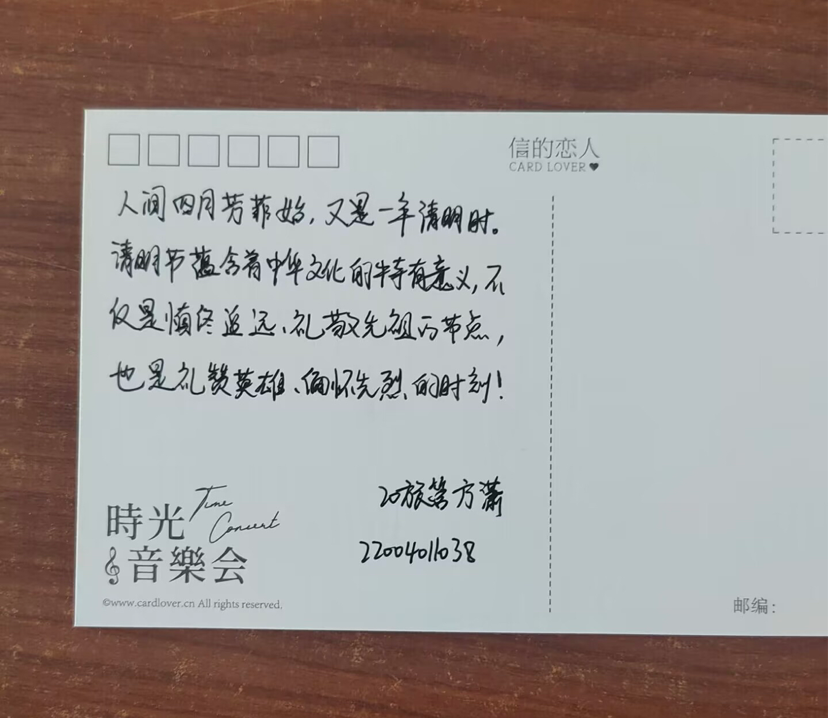 信的恋人
CARD LOVER
人间四月芳菲始，又是一年清明时。
清明节蕴含着中华文化的特有意义，不
仅是慎终追远、礼敬先祖的节点，
也是礼赞英雄、缅怀先烈的时刻！
20旅管方潇
2200401038
時光
Time
Concert
音樂会
©www.cardlover.cn All rights reserved.
邮编：